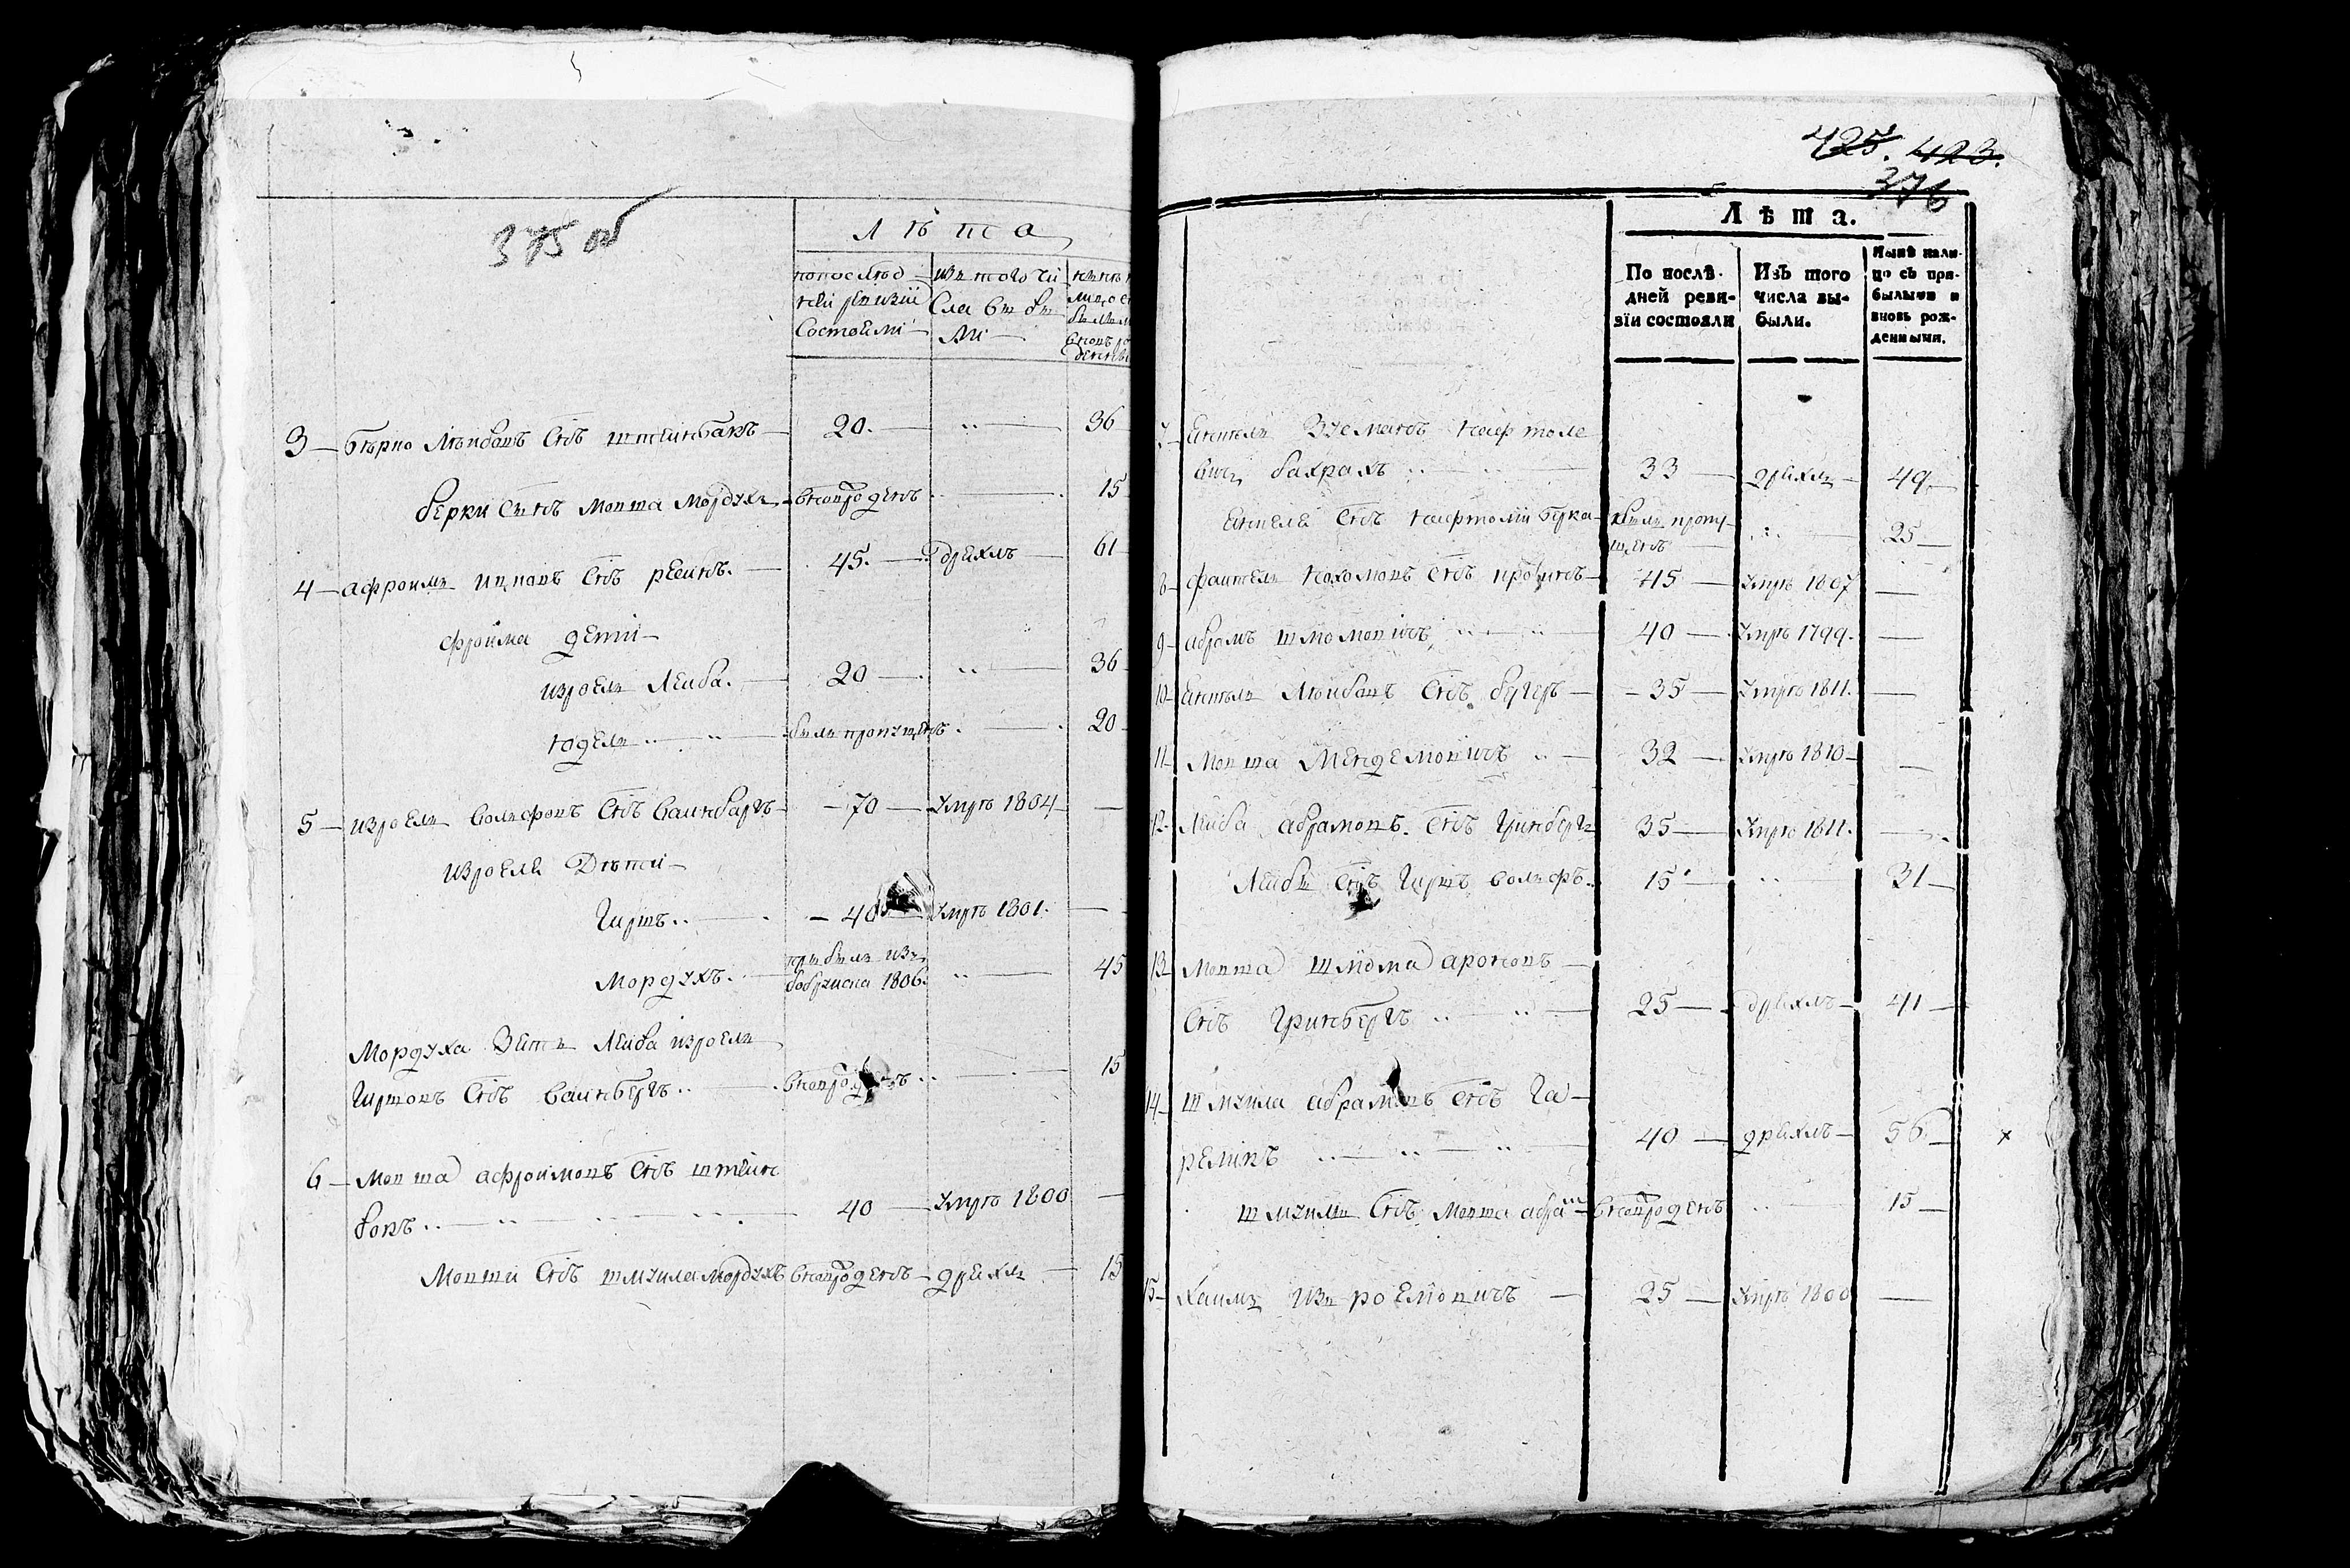 375 об
Лѣта
попослѣд
ней ревизіи
состояли
изъ того чи
сла выбы
ли
3 — Бѣрко Лѣйбовъ Снъ Штейнбакъ — 20. — 36
Берки Сынъ Мовша Мордухъ — вновьрожденъ — 15
4 — Афроимъ Ицковъ Снъ — 45. — дряхлъ — 61
Фроима дети —
Израель Лейба. — 20 — 36
Юдель — былъ пропущенъ — 20
5 — Израель Волфовъ Снъ Ваинбаргъ — 70 — Умре 1804 —
Израеля Дѣти —
Гиршъ — 40 — Умре 1801. —
Мордухъ. — прибылъ изъ
бобруиска 1806. — 45
Мордуха Зять Лейба Израель
Гиршовъ Снъ Ваинбергъ — вновьрожденъ — 15
6 — Мовша Афроимовъ Снъ Штейн
бокъ — 40 — Умре 1800 —
Мовши Снъ Шмуила Мордухъ вновьрожденъ — дряхлъ — 15
425. 423.
376
Лѣта.
По послѣ-
дней реви-
зіи состояли
Изъ того
числа вы-
были.
Нынѣ нали-
цо съ при-
былыми и
вновь рож-
денными.
7 — Зусмановъ Нафтоле
вичъ Бахрахъ — 33 — дряхлъ — 49 —
Снъ Нафтолій Берка — былъ пропу-
щенъ — 25 —
8 — Файтель Нохомовъ Снъ — 45 — Умре 1807 —
9 — Абрамъ Шломовичъ — 40 — Умре 1799. —
10 — Лѣйбовъ Снъ — 35 — Умре 1811. —
11 — Мовша Менделовичъ — 32 — Умре 1810 —
12 — Лейба Абрамовъ. Снъ Гринбергъ 35 — Умре 1811. —
Лейбы Снъ Гиршъ Волфъ. 15 — 31 —
13 Мовша Шлома Ароновъ —
Снъ Гринбергъ — 25 — дряхлъ — 41 —
14 — Шмуила Абрамовъ Снъ Га-
реликъ — 40 — дряхлъ — 56 — х
Шмуилы Снъ Мовша Абрам — вновьрожденъ — 15 —
15 — Хаимъ Изъроелѣвичъ — 25 — Умре 1800 —